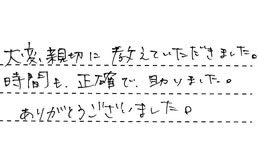 大変親切に教えていただきました。
時間も、正確で、助りました。
ありがとうございました。